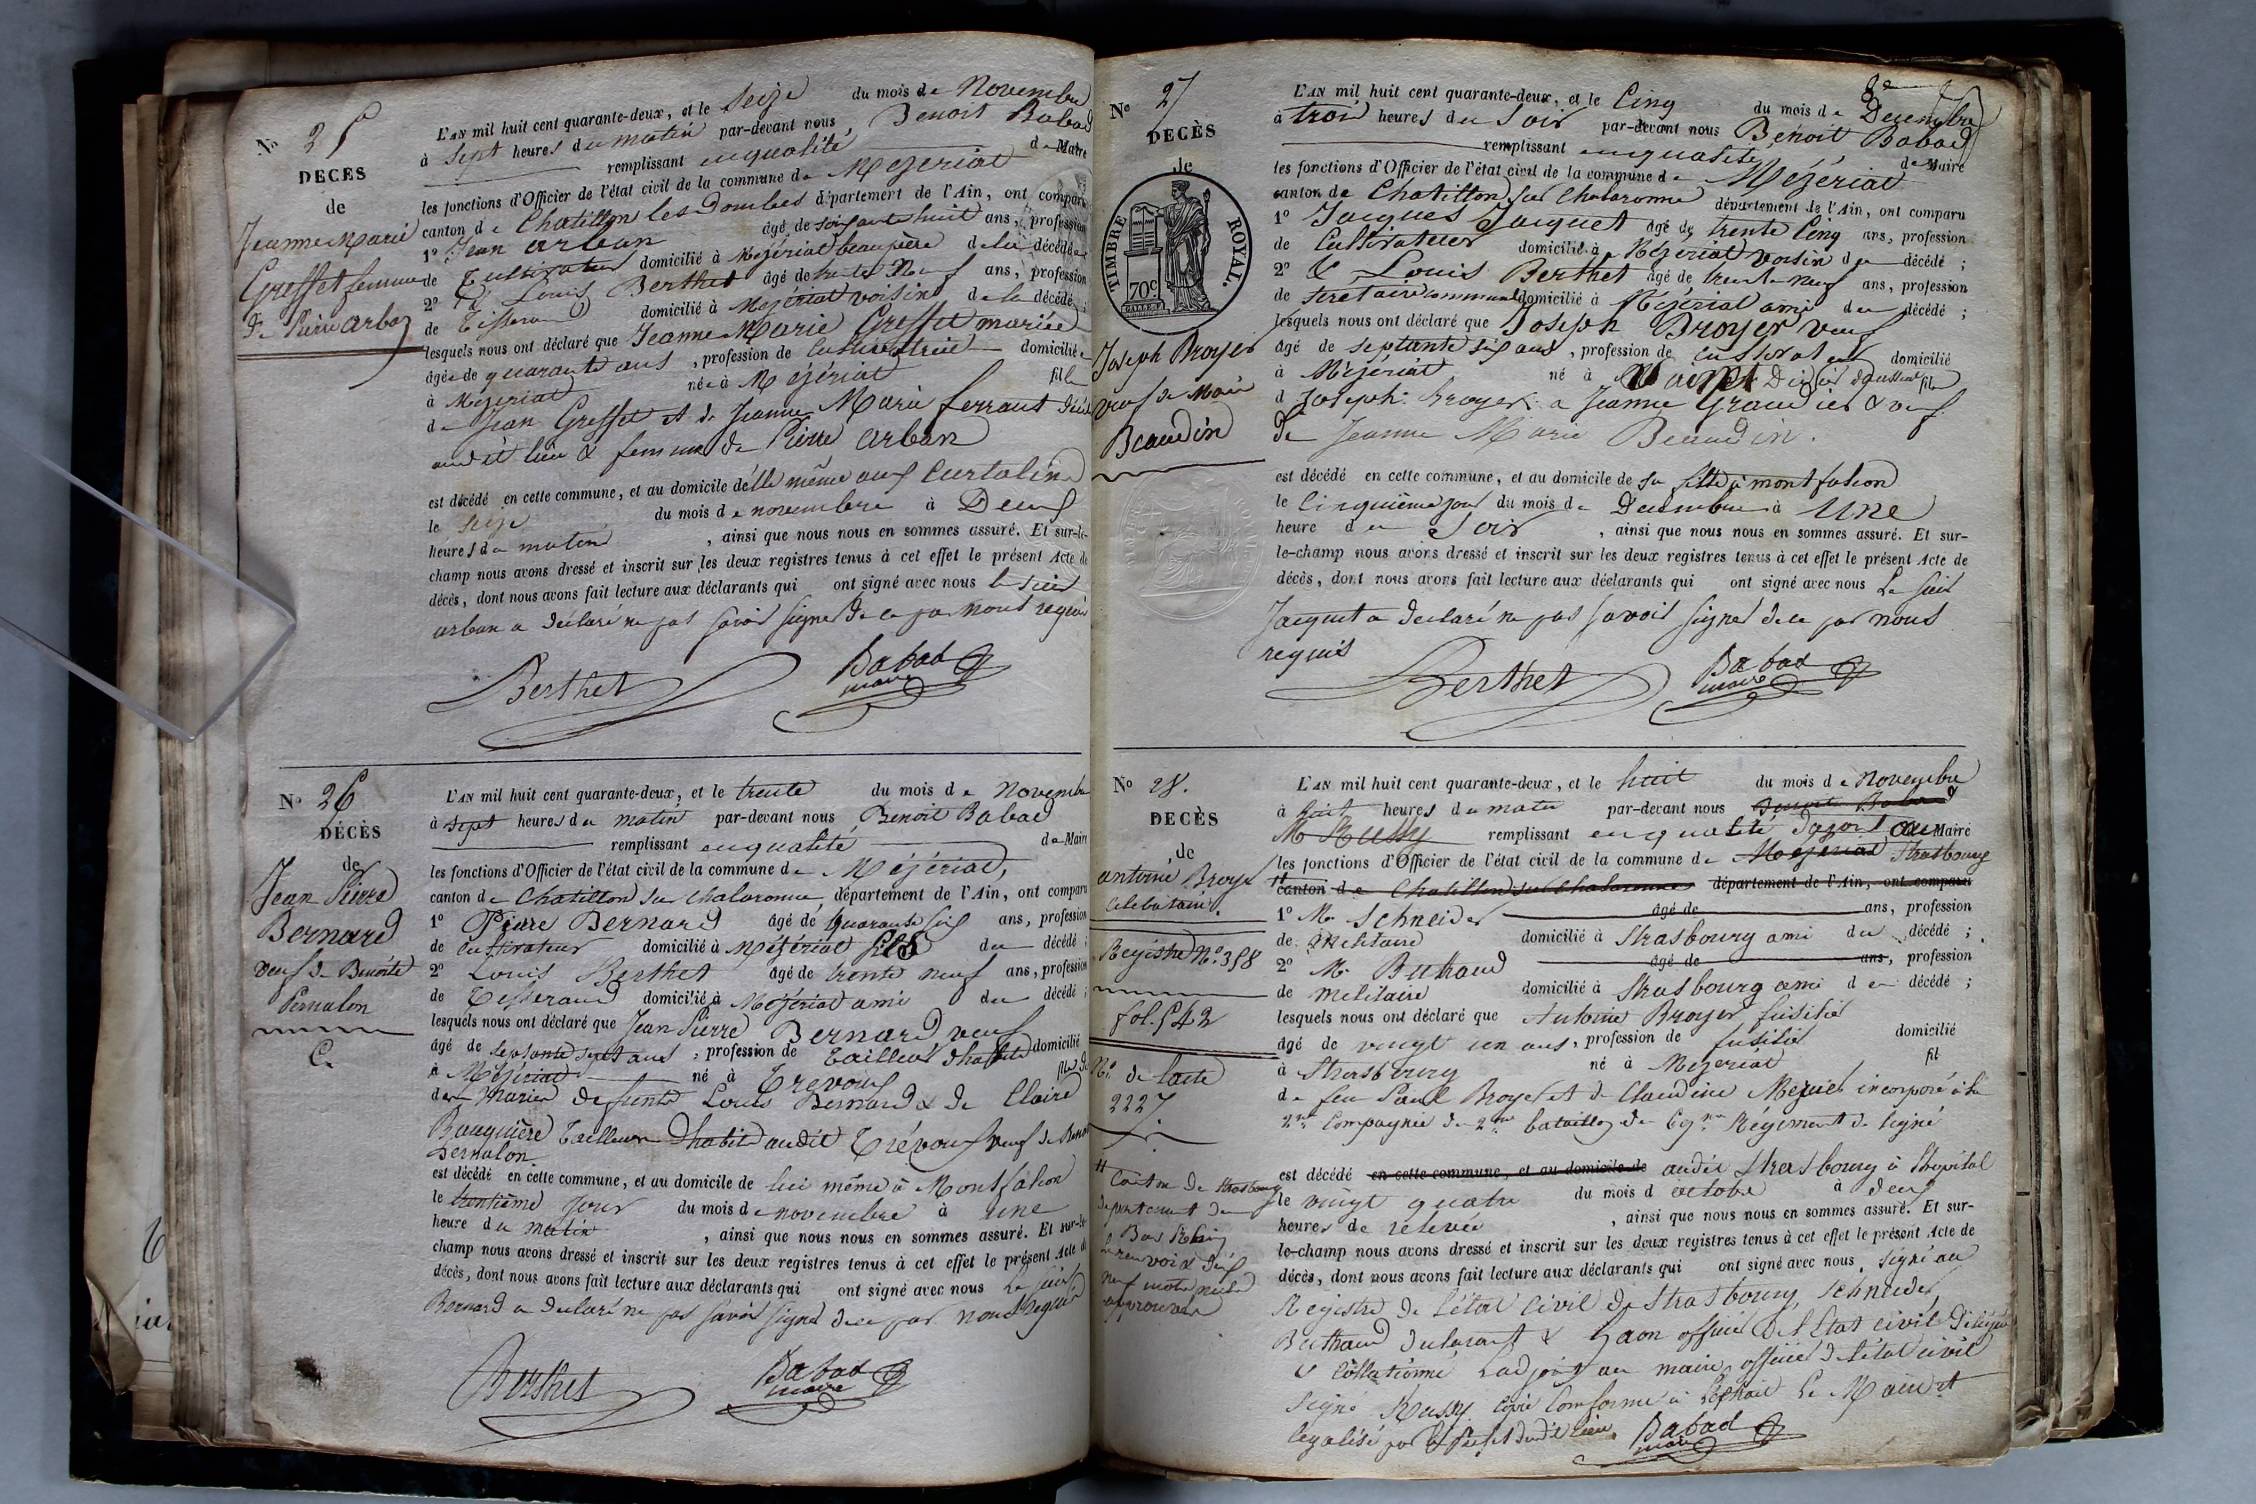 No 25
DÉCÈS
de
Jeanne Marie
Greffet femme
de Pierre Arban
L'AN mil huit cent quarante-deux, et le seize du mois de Novembre
à sept heures du matin par-devant nous Benoit Babad
remplissant en qualité de Maire
les fonctions d'Officier de l'état civil de la commune de Mézériat
canton de Chatillon les Dombes département de l'Ain, ont comparu
1o Jean Arban âgé de soixante huit ans, profession
de Cultivateur domicilié à Mézériat beaupère de la décédée
2o & Louis Berthet âgé de trente Neuf ans, profession
de Tisserand domicilié à Mézériat voisin de la décédée ;
lesquels nous ont déclaré que Jeanne Marie Greffet mariée
âgée de quarante ans, profession de cultivatrice domiciliée
à Mézériat née à Mézériat fille
de Jean Greffet et de Jeanne Marie ferraut
audit lieu & femme de Pierre Arban
est décédé en cette commune, et au domicile d'elle même aux Curtalin
le seize du mois de novembre à Deux
heures du matin, ainsi que nous nous en sommes assuré. Et sur-le-
champ nous avons dressé et inscrit sur les deux registres tenus à cet effet le présent Acte de
décès, dont nous avons fait lecture aux déclarants qui ont signé avec nous le sieur
arban a déclaré ne pas savoir signer de ce par nous requis
Berthet Babad
maire
No 26
DÉCÈS
de
Jean Pierre
Bernard
veuf de Benoite
Pernalon
C.
L'AN mil huit cent quarante-deux, et le trente du mois de Novembre
à sept heures du matin par-devant nous Benoit Babad
remplissant en qualité de Maire
les fonctions d'Officier de l'état civil de la commune de Mézériat,
canton de Chatillon sur Chalaronne, département de l'Ain, ont comparu
1o Pierre Bernard âgé de quarante six ans, profession
de cultivateur domicilié à Mézériat fils du décédé ;
2o Louis Berthet âgé de trente neuf ans, profession
de Tisserand domicilié à Mézériat ami du décédé ;
lesquels nous ont déclaré que Jean Pierre Bernard veuf
âgé de septante sept ans, profession de Tailleur d'habits domicilié
à Mézériat né à Trevoux fils de
des mariés defunts Louis Bernard & de Claire
Bauquière Tailleur d'habits audit Trévoux veuf de Benoite
Pernalon
est décédé en cette commune, et au domicile de lui même à Montfalcon
le trentième jour du mois de novembre à une
heure du matin, ainsi que nous nous en sommes assuré. Et sur-le-
champ nous avons dressé et inscrit sur les deux registres tenus à cet effet le présent Acte de
décès, dont nous avons fait lecture aux déclarants qui ont signé avec nous le sieur
Bernard a déclaré ne pas savoir signer de ce par nous requis
Berthet Babad
maire
No 27
DÉCÈS
de
TIMBRE ROYAL.
70c
Joseph Broyer
veuf de Marie
Beaudin
L'AN mil huit cent quarante-deux, et le Cinq du mois de Decembre
à trois heures du soir par-devant nous Benoit Babad
remplissant en qualité de Maire
les fonctions d'Officier de l'état civil de la commune de Mézériat
canton de Chatillon sur Chalaronne département de l'Ain, ont comparu
1o Jacques Jacquet âgé de trente Cinq ans, profession
de Cultivateur domicilié à Mézériat voisin du décédé ;
2o & Louis Berthet âgé de trente neuf ans, profession
de secretaire communal domicilié à Mézériat ami du décédé ;
lesquels nous ont déclaré que Joseph Broyer veuf
âgé de septante six ans, profession de cultivateur domicilié
à Mézériat né à Saint Didier d'aussiat fils
d Joseph Broyer & Jeanne Grandier & veuf
de Jeanne Marie Beaudin.
est décédé en cette commune, et au domicile de sa fille à montfalcon
le Cinquième jour du mois de Decembre à une
heure du soir, ainsi que nous nous en sommes assuré. Et sur-
le-champ nous avons dressé et inscrit sur les deux registres tenus à cet effet le présent Acte de
décès, dont nous avons fait lecture aux déclarants qui ont signé avec nous Le sieur
Jacquet a déclaré ne pas savoir signer de ce par nous
requis
Berthet Babad
maire
No 28.
DÉCÈS
de
antoine Broyer
célebataire.
Registre No. 358
fol. 542
No. de l'acte
2227
Canton de Strasbourg
departement du
Bas Rhin
renvoi
approuvés
L'AN mil huit cent quarante-deux, et le huit du mois de Novembre
à huit heures du matin par-devant nous Benoit Babad
M Russy remplissant en qualité d'adjoint au Maire
les fonctions d'Officier de l'état civil de la commune de Mézériat Strasbourg
canton de Chatillon sur Chalaronne département de l'Ain, ont comparu
1o Mr Schneider âgé de ans, profession
de militaire domicilié à Strasbourg ami du décédé ;
2o Mr Buthaud âgé de ans, profession
de militaire domicilié à Strasbourg ami du décédé ;
lesquels nous ont déclaré que Antoine Broyer fusilier
âgé de vingt un ans, profession de fusilier domicilié
à Strasbourg né à Mézériat fil
de feu Paul Broyer et de Claudine Meguet incorporé à la
2me Compagnie du 2me bataillon du 69me Régiment de ligne
est décédé en cette commune, et au domicile de audit Strasbourg à l'hopital
le vingt quatre du mois d octobre à deux
heures de relevée, ainsi que nous nous en sommes assuré. Et sur-
le-champ nous avons dressé et inscrit sur les deux registres tenus à cet effet le présent Acte de
décès, dont nous avons fait lecture aux déclarants qui ont signé avec nous, signé au
Registre de l'état civil de Strasbourg, Schneider,
Buthaud déclarant & officier de l'Etat civil
& collationné L'adjoint au maire, officier de l'état civil
signé Russy copie conforme à l'extrait Le Maire et
legalisé par le Prefet dudit lieu. Babad
maire